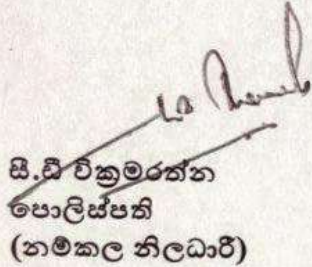 සී.ඩී වික්‍රමරත්න
පොලිස්පති
(නම්කල නිලධාරී)